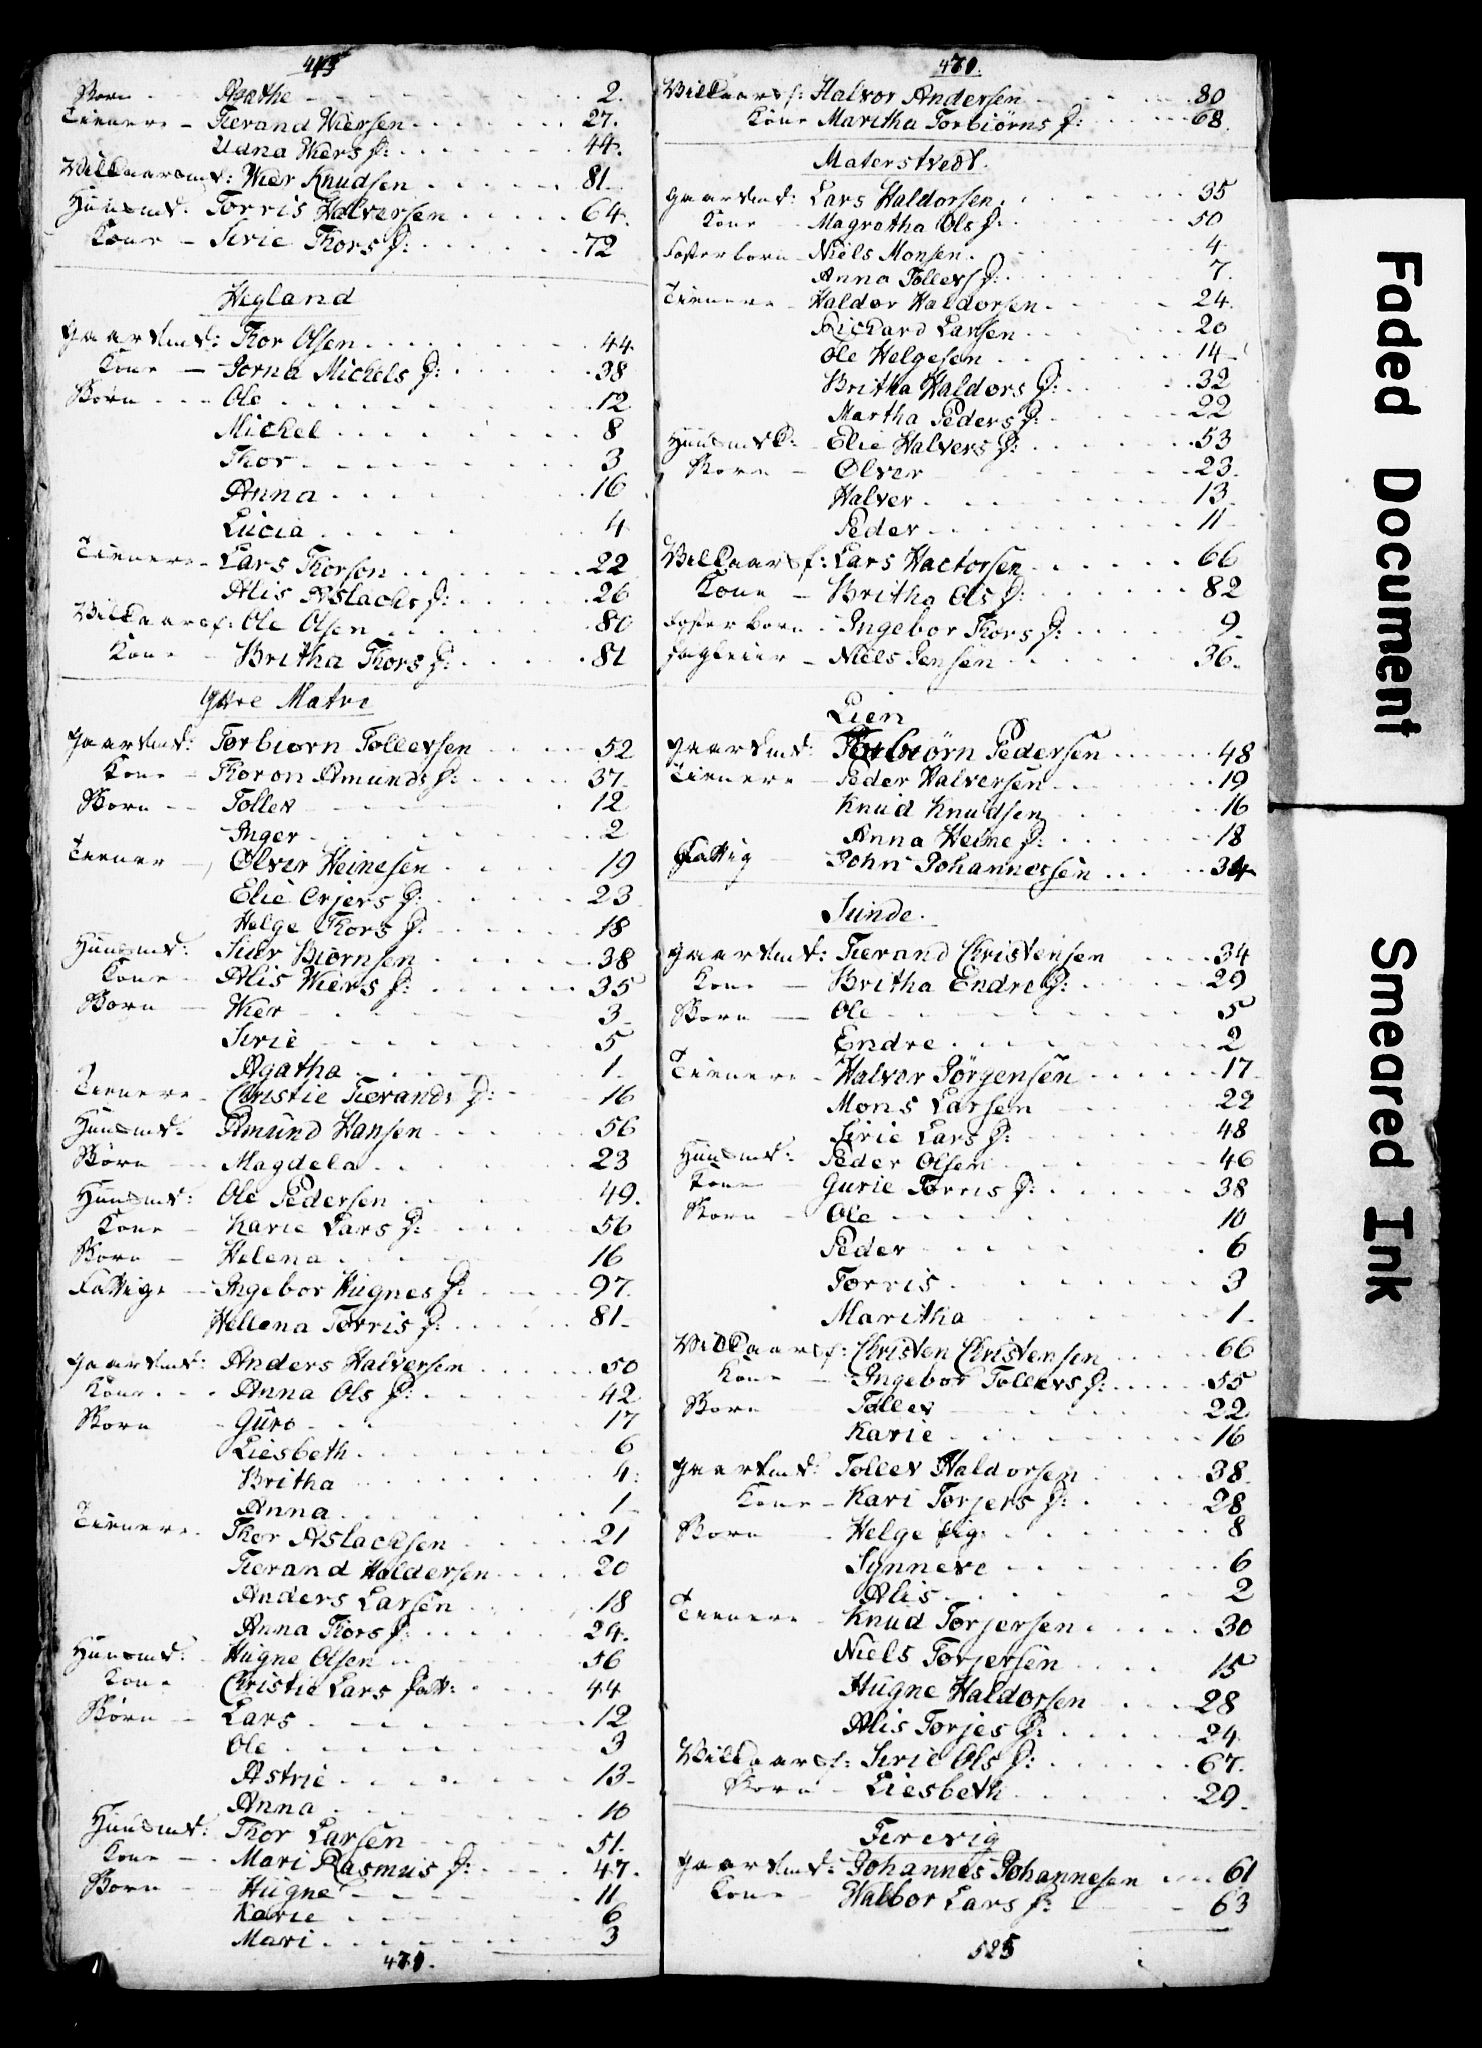 Børn - Agathe 2.
Tienere - Tierand Wiersen 27.
Udna Wiers D: 44.
Vilkaarsmd: Wier Knudsen 81.
Huusmd: Torris Halversen 64.
Kone - Sirie Thors D: 72
Higland
Gaardmd: Thor Olsen 44.
Kone - Jorna Michels D: 38
Børn - Ole 12
Mickel 8
Thor 3
Anna 16
Lucia 4
Tienere - Lars Thorson 22
Alis Aslachs D: 26
Vilkaarsf: Ole Olsen 80
Kone Britha Thors D: 81
Ytre Matre
Gaardmd: Torbiørn Tollevsen 52
Kone - Thoron Amunds D: 37
Børn - Tollev 12
Inger 2
Tiener - Ølver Heinesen 19
Elie Erjers D: 23
Helge Thors D: 18
Huusmd: Siur Biørnsen 38
Kone - Alis Wiers D: 35
Børn - Wier 3
Sirie 5
Agatha 1
Tienere - Christie Tierands D: 16
Huusmd: Amund Hansen 56
Børn - Magdela 23
Huusmd: Ole Pedersen 49.
Kone - Karie Lars D: 56
Børn - Helena 16
Fattige - Ingebor Hugnes D: 97.
Hellena Torris D: 81
Gaardmd: Anders Halversen 50
Kone - Anna Ols D: 42
Børn - Guro 17
Liesbeth 6
Britha 4
Anna 1
Tienere - Thor Aslachsen 21
Tierand Haldersen 20
Anders Larsen 18
Anna Thors D: 24.
Huusmd: Hugne Olsen 56
Kone Christie Lars Datt: 44
Børn - Lars 12
Ole 3
Astrie 13
Anna 10
Huusmd: Thor Larsen 51.
Kone - Mari Rasmus D: 47.
Børn - Hugne 11
Karie 6
Mari 3
471.
471.
Vilkaarsf: Halvor Andersen 80
Kone Maritha Torbiørns D: 68
Materstvedt.
Gaardmd: Lars Haldorsen 35
Kone - Magretha Ols D: 50
Fosterbørn - Niels Monsen 4
Anna Tollevs D: 7.
Tienere - Haldor Haldorsen 24.
Rickard Larsen 20
Ole Helgesen 14
Britha Haldors D: 32
Martha Peders D: 22
Huusmdk: - Elie Halvers D: 53
Børn - Ølver 23
Halver 13
Peder 11
Vilkaarsf: Lars Hactorsen 66
Kone - Britha Ols D: 82
Fosterbørn - Ingebor Thors D: 9
Jagleier - Niels Jensen 36.
Lien
Gaardmd: Torbiørn Pedersen 48
Tienere - Peder Halversen 19
Knud Knudsen 16
Anna Heine D: 18
Fattig John Johannessen 34
Sunde.
Gaardmd: Tierand Christensen 34
Kone - Britha Endre D: 29
Børn - Ole 5
Endre 2
Tienere - Halvor Jørgensen 17
Mons Larsen 22
Sirie Lars D: 48
Huusmd: Peder Olsen 46
Kone - Gurie Torris D: 38
Børn - Ole 10
Peder 6
Torris 3
Maritha 1
Vilkaarsf: Christen Christensen 66
Kone - Ingebor Tollevs D: 55
Børn - Tollev 22
Karie 16
Gaardmd: Tollev Haldorsen 38
Kone - Kari Torjers D: 28
Børn - Helge pig: 8
Synneve 6
Alis 2
Tienere - Knud Torjersen 30
Niels Torjersen 15
Hugne Haldorsen 28
Alis Torjes D: 24
Vilkaarsf: Sirie Ols D: 67.
Børn - Liesbeth 29
Terevig
Gaardmd: Johannes Johannesen 61
Kone - Walbor Lars D: 63
525
Faded Document
Smeared Ink